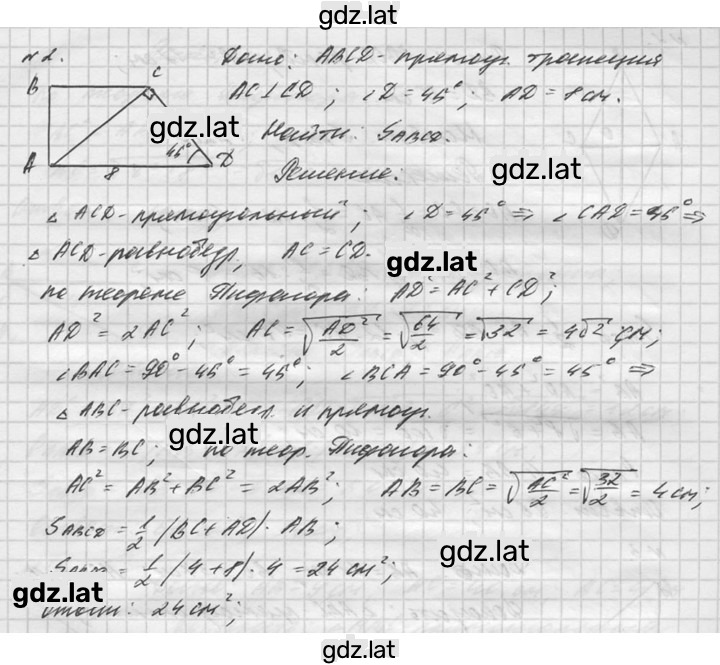 gdz.lat
№2.
Дано: ABCD - прямоуг. трапеция
B C
gdz.lat
AC⊥CD ; ∠D = 45° ; AD = 8 см.
gdz.lat
Найти: SABCD.
A 8 45° D
gdz.lat
Решение:
△ ACD - прямоугольный ; ∠D = 45° ⇒ ∠CAD = 45° ⇒
△ ACD - равнобедр, AC = CD.
gdz.lat
по теореме Пифагора: AD² = AC² + CD² ;
AD² = 2AC² ; AC = √(AD²/2) = √(64/2) = √32 = 4√2 см ;
∠BAC = 90° - 45° = 45° ; ∠BCA = 90° - 45° = 45° ⇒
△ ABC - равнобедр. и прямоуг.
gdz.lat
AB = BC ; по теор. Пифагора:
AC² = AB² + BC² = 2AB² AB = BC = √(AC²/2) = √(32/2) = 4 см ;
SABCD = 1/2 (BC + AD) · AB ;
gdz.lat
SABCD = 1/2 (4 + 8) · 4 = 24 см² ;
gdz.lat
Ответ: 24 см² ;
gdz.lat